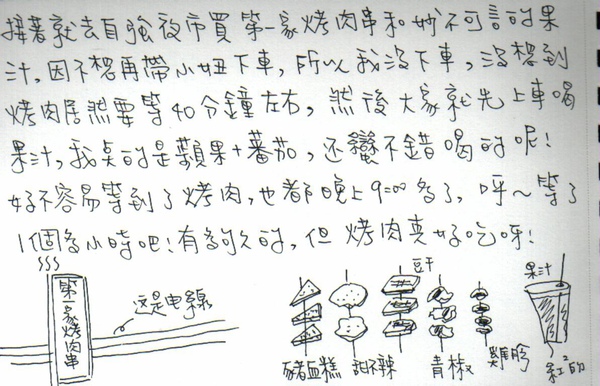 接著就去自強夜市買第一家烤肉串和妙不可言的果
汁,因不想再帶小妞下車,所以我沒下車,沒想到
烤肉居然要等40分鐘左右,然後大家就先上車喝
果汁,我点的是蘋果+蕃茄,还蠻不錯喝的呢!
好不容易等到了烤肉,也都晚上9:00多了,呼~等了
1個多小時吧!有多久的,但烤肉真好吃呀!
第一家烤肉串
这是电線
豬血糕
甜不辣
豆干
青椒
雞胗
果汁
紅色的